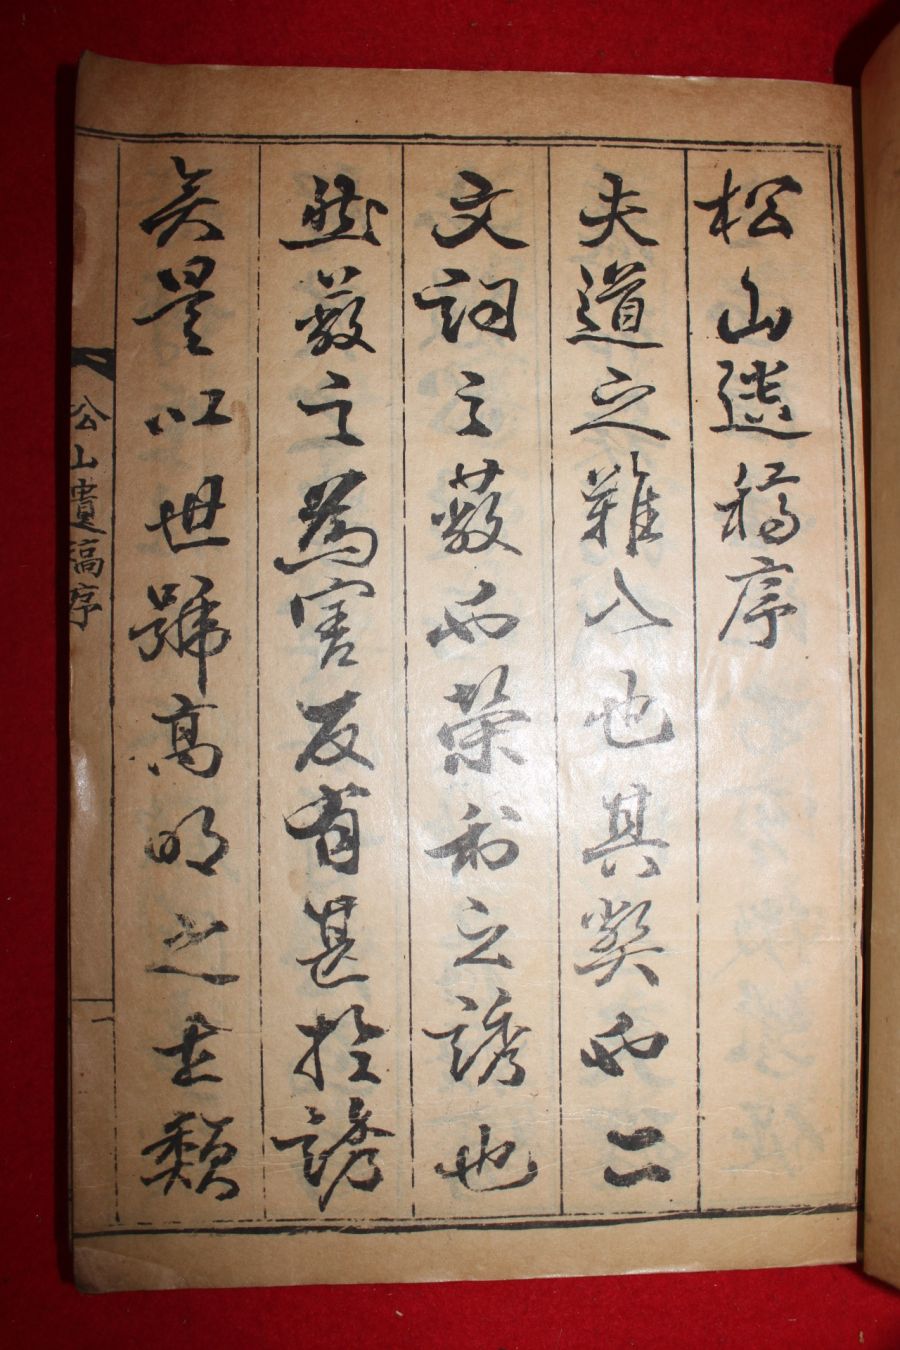 松山遺稿序
夫道之難入也其獘也二
文詞之蔽也榮利之誘也
然蔽之為害反有甚於誘
矣是以世號高明之士類
松山遺稿序
一